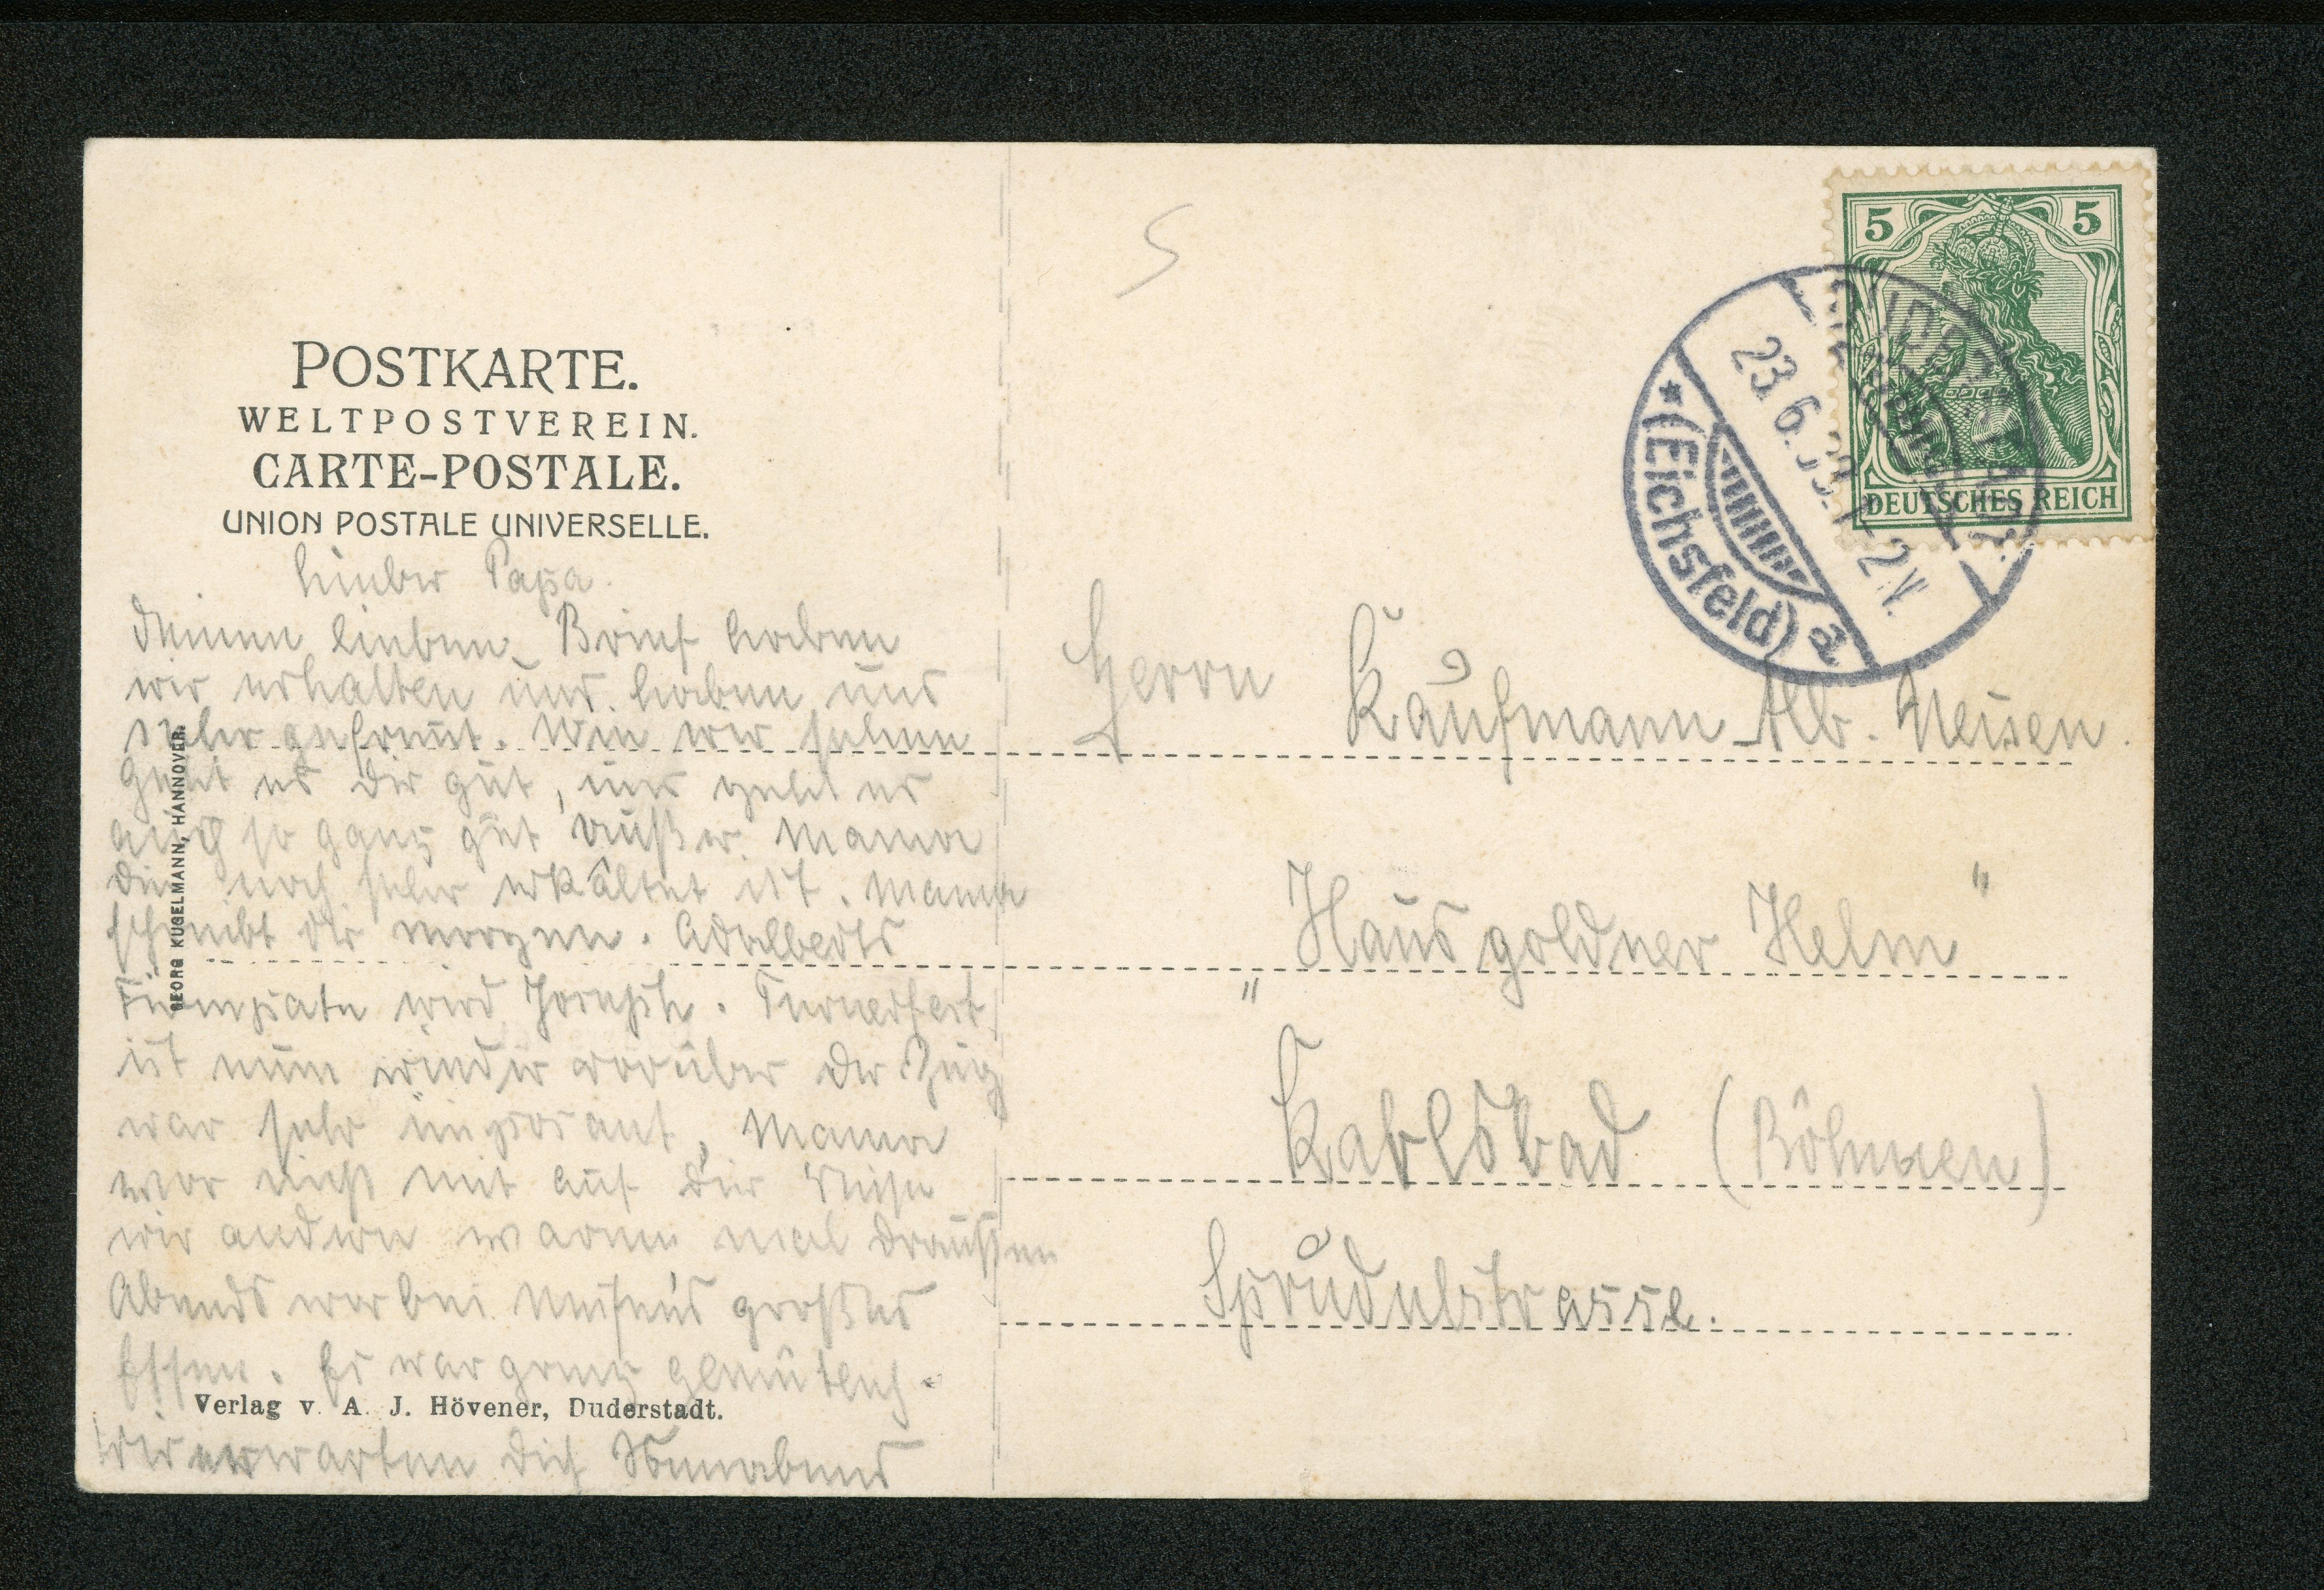 POSTKARTE.
WELTPOSTVEREIN.
CARTE-POSTALE.
UNION POSTALE UNIVERSELLE.
Lieber Papa.
Deinen lieben Brief haben
wir erhalten und haben uns
sehr gefreut. Wie wir sehen
geht es dir gut, uns geht es
auch so ganz gut außer Mama
die noch sehr erkältet ist. Mama
schreibt dir morgen. Adalberts
wird Joseph. Turnerfest
ist nun wieder vorüber der Zug
war sehr imposant, Mama
war nicht mit auf die Wiese
wir andern waren mal draußen
Abends war bei großes
Essen. Es war ganz gemütlich.
Wir erwarten dich Sonnabend
GEORG KUGELMANN, HANNOVER.
Verlag v. A. J. Hövener, Duderstadt.
5 5
DEUTSCHES REICH
23.6. 1-2N.
* (Eichsfeld) a
Herrn Kaufmann Alb.
"Haus goldner Helm"
Karlsbad (Böhmen)
Sprudelstrasse.